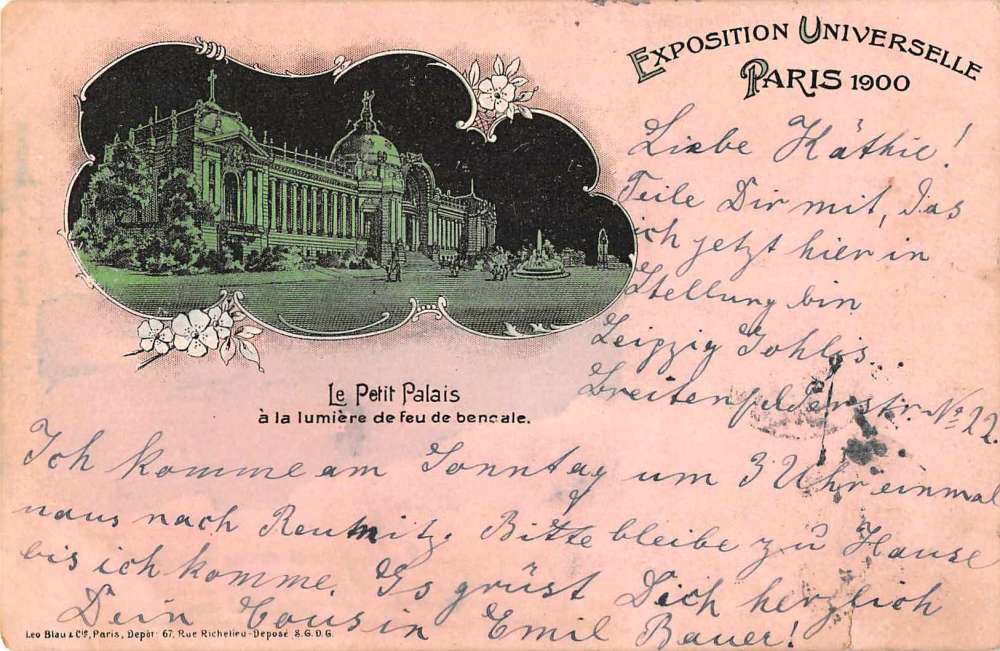 EXPOSITION UNIVERSELLE
PARIS 1900
Liebe Käthie!
Teile Dir mit, das
ich jetzt hier in
Stellung bin
Leipzig Gohlis.
Breitenfelderstr. No 22
Le Petit Palais
à la lumière de feu de bengale.
Ich komme am Sonntag um 3 Uhr einmal
naus nach Reudnitz. Bitte bleibe zu Hause
bis ich komme. Es grüst Dich herzlich
Dein Cousin Emil Bauer!
Leo Blau & Cie, Paris, Depôt 67, Rue Richelieu-Déposé S.G.D.G.